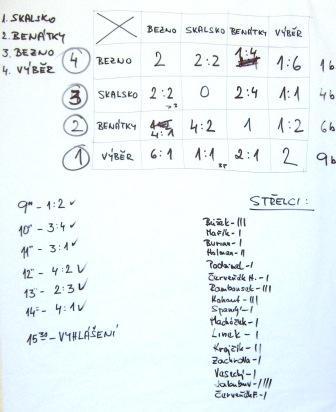 1. SKALSKO
2. BENÁTKY
3. BEZNO
4. VÝBĚR
BEZNO SKALSKO BENÁTKY VÝBĚR
4 BEZNO 2 2:2 1:4 1:6 1b
3 SKALSKO 2:2 0 2:4 1:1 4b
2 BENÁTKY 4:1 4:2 1 1:2 6b
1 VÝBĚR 6:1 1:1 2:1 2 9b
STŘELCI:
9 - 1:2 ✓
10 - 3:4 ✓
11 - 3:1 ✓
12 - 4:2 ✓
13 - 2:3 ✓
14 - 4:1 ✓
15 30 - VYHLÁŠENÍ
Mařík - I
Burman - I
Holman - II
Červeňák H. - I
Rambousek - III
Kohout - III
Španý - I
Macháček - I
Linek - I
Krejčík - II
Zachrdla - I
Veselý - I
Jakubův - IIII
Červeňák F. - I